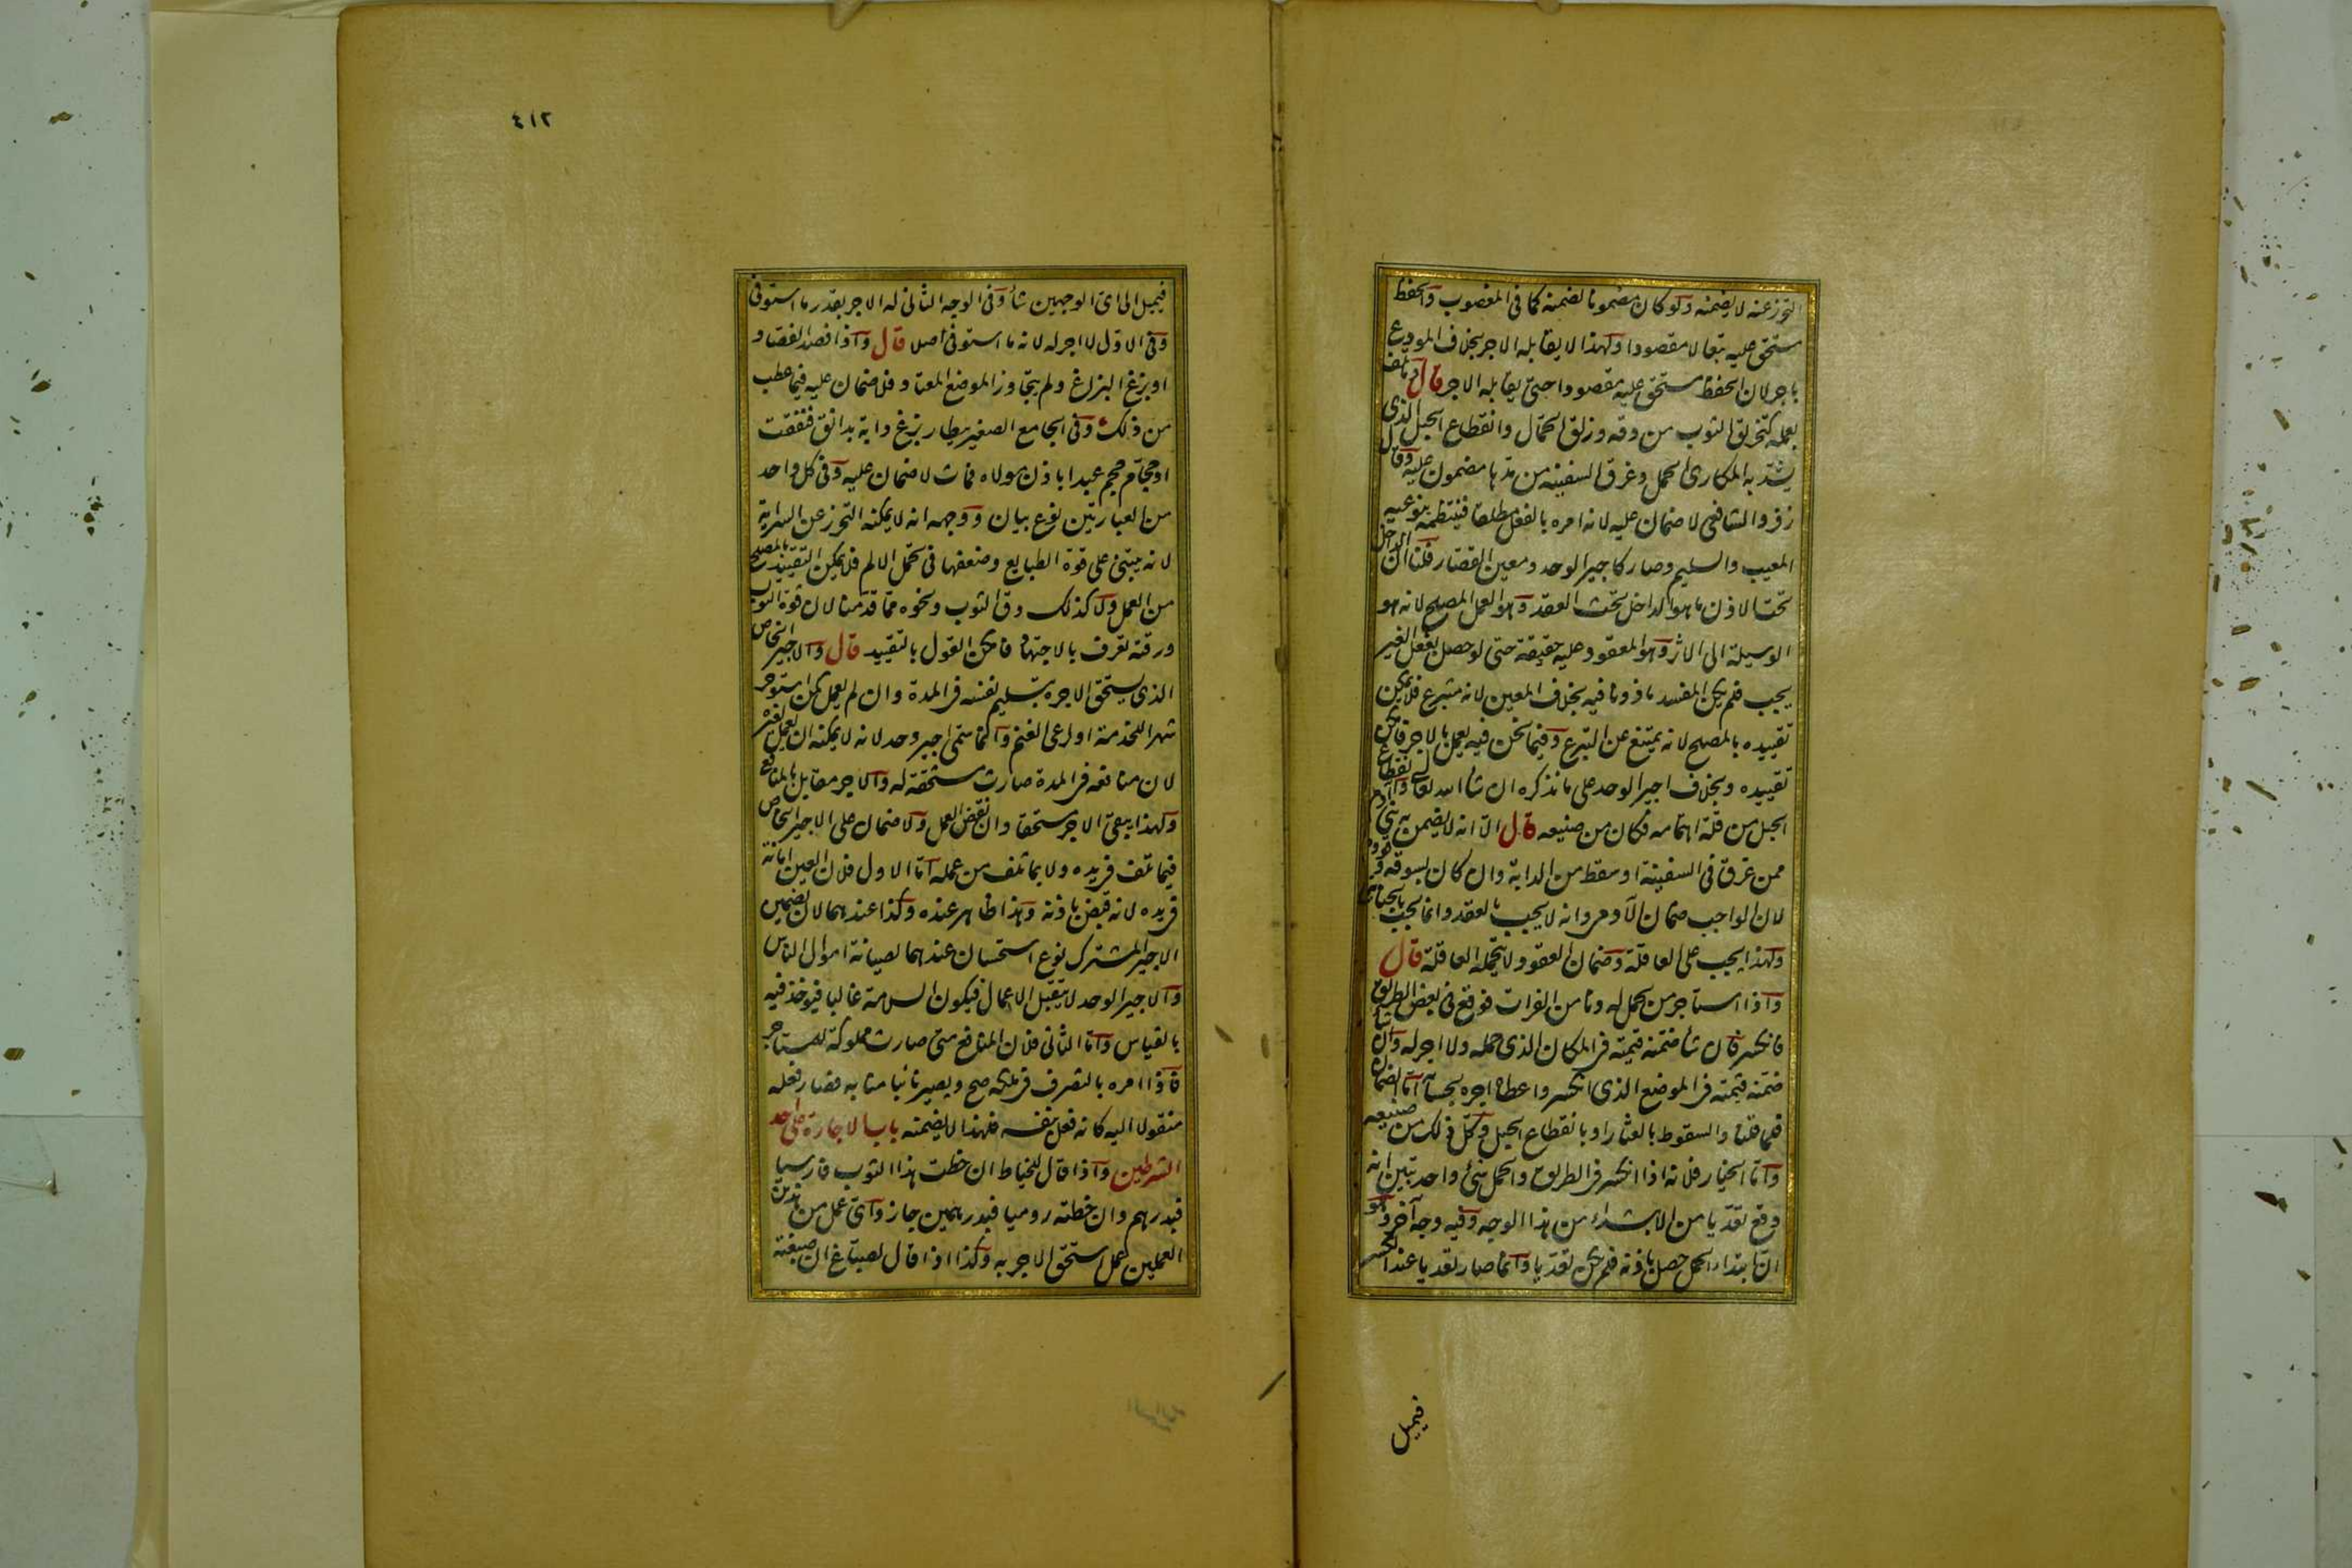 التحرز عنه لا يضمنه ولو كان مضمونا لضمنه كما فى المغصوب والحفظ
مستحق عليه تبعا لا مقصودا ولهذا لا يقابله الاجر بخلاف المودع
باجر لان الحفظ مستحق عليه مقصودا حتى يقابله الاجر قال وما تلف
بعمله كتخريق الثوب من دقه وزلق الحمال وانقطاع الحبل الذى
يشد به المكارى الحمل وغرق السفينة من مدها مضمون عليه وقال
زفر والشافعى لا ضمان عليه لانه امره بالفعل مطلقا فينتظمه بنوعيه
المعيب والسليم وصار كاجير الوحد ومعين القصار قلنا ان الداخل
تحت الاذن ما هو الداخل تحت العقد وهو العمل المصلح لانه هو
الوسيلة الى الاثر وهو المعقود عليه حقيقة حتى لو حصل بفعل الغير
يجب فلم يكن المفسد ماذونا فيه بخلاف المعين لانه متبرع فلا يمكن
تقييده بالمصلح لانه يمتنع عن التبرع وفيما نحن فيه يعمل بالاجر فامكن
تقييده وبخلاف اجير الوحد على ما نذكره ان شا الله تعالى وانقطاع
الحبل من قلة اهتمامه فكان من صنيعه قال الا انه لا يضمن به بنى آدم
ممن غرق فى السفينة او سقط من الدابة وان كان بسوقه وقوده
لان الواجب ضمان الآدمى وانه لا يجب بالعقد وانما يجب بالجناية
ولهذا يجب على العاقلة وضمان العقود لا يتحمله العاقلة قال
واذا استاجر من يحمل له دنا من الفرات فوقع فى بعض الطريق
فانكسر فان شا ضمنه قيمته فى المكان الذى حمله ولا اجر له وان شا
ضمنه قيمته فى الموضع الذى انكسر واعطاه اجره بحسابه اما الضمان
فلما قلنا والسقوط بالعثار او بانقطاع الحبل وكل ذلك من صنيعه
واما الخيار فلانه اذا انكسر فى الطريق والحمل شئ واحد تبين انه
وقع تعديا من الابتداء من هذا الوجه وفيه وجه آخر وهو
ان ابتداء الحمل حصل باذنه فلم يكن تعديا وانما صار تعديا عند الكسر
فيميل
٤١٢
فيميل الى اى الوجهين شا وفى الوجه الثانى له الاجر بقدر ما استوفى
وفى الاول لا اجر له لانه ما استوفى اصلا قال واذا فصد الفصاد
او بزغ البزاغ ولم يتجاوز الموضع المعتاد فلا ضمان عليه فيما عطب
من ذلك وفى الجامع الصغير بيطار بزغ دابة بدانق فنفقت
او حجام حجم عبدا باذن مولاه فمات لا ضمان عليه وفى كل واحد
من العبارتين نوع بيان ووجهه انه لا يمكنه التحرز عن السراية
لانه يبتنى على قوة الطبايع وضعفها فى تحمل الالم فلا يمكن التقييد بالمصلح
من العمل ولا كذلك دق الثوب ونحوه مما قدمنا لان قوة الثوب
ورقته تعرف بالاجتهاد فامكن القول بالتقييد قال والاجير الخاص
الذى يستحق الاجرة بتسليم نفسه فى المدة وان لم يعمل كمن استوجر
شهرا للخدمة او لرعى الغنم وانما سمى اجير وحد لانه لا يمكنه ان يعمل لغيره
لان منافعه فى المدة صارت مستحقة له والاجر مقابل بالمنافع
ولهذا يبقى الاجر مستحقا وان نقض العمل ولا ضمان على الاجير الخاص
فيما تلف فى يده ولا بما تلف من عمله اما الاول فلان العين امانة
فى يده لانه قبض باذنه وهذا ظاهر عنده وكذا عندهما لان تضمين
الاجير المشترك نوع استحسان عندهما لصيانة اموال الناس
والاجير الوحد لا يتقبل الاعمال فيكون السلامة غالبا فيوخذ فيه
بالقياس واما الثانى فلان المنافع متى صارت مملوكة للمستاجر
فاذا امره بالتصرف فى ملكه صح ويصير نائبا منابه فصار فعله
منقولا اليه كانه فعل بنفسه فلهذا لا يضمنه باب الاجارة على احد
الشرطين واذا قال للخياط ان خطت هذا الثوب فارسيا
فبدرهم وان خطته روميا فبدرهمين جاز واى عمل من هذين
العملين عمل استحق الاجر به وكذا اذا قال لصباغ ان صبغته